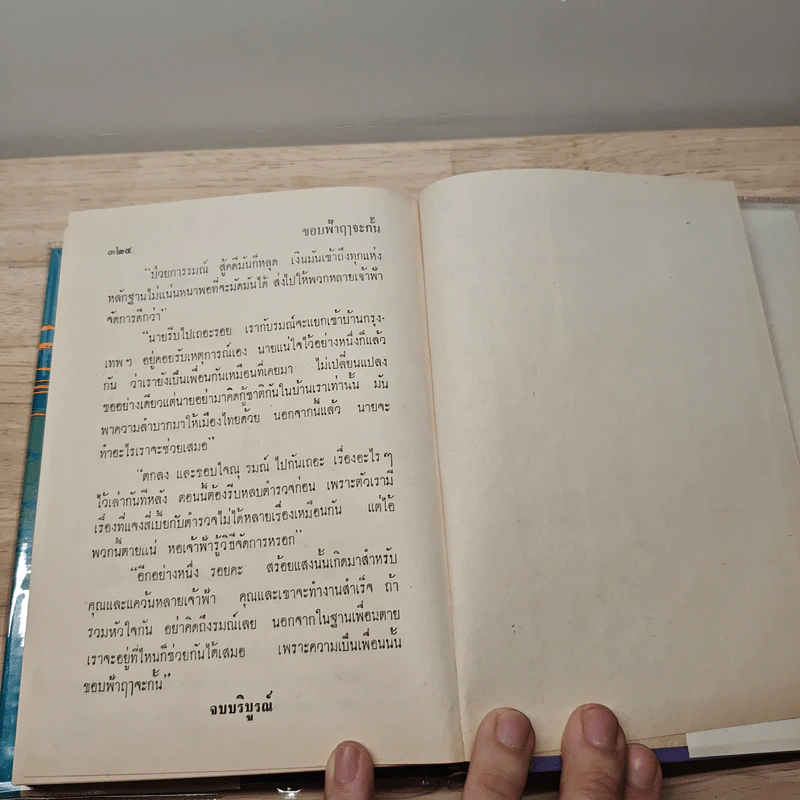 ๓๒๕
ขอบฟ้าฤาจะกั้น
“ป่วยการรมณ์ สู้คดีมันก็หลุด เงินมันเข้าถึงทุกแห่ง
หลักฐานไม่แน่นหนาพอที่จะมัดมันได้ ส่งไปให้พวกหลายเจ้าฟ้า
จัดการดีกว่า”
“นายรีบไปเถอะรอย เรากับรมณ์จะแยกเข้าบ้านกรุง-
เทพฯ อยู่คอยรับเหตุการณ์เอง นายแน่ใจไว้อย่างหนึ่งก็แล้ว
กัน ว่าเรายังเป็นเพื่อนกันเหมือนที่เคยมา ไม่เปลี่ยนแปลง
ขออย่างเดียวแต่นายอย่ามาคิดกู้ชาติกันในบ้านเราเท่านั้น มัน
พาความลำบากมาให้เมืองไทยด้วย นอกจากนี้แล้ว นายจะ
ทำอะไรเราจะช่วยเสมอ”
“ตกลง และขอบใจณุ รมณ์ ไปกันเถอะ เรื่องอะไรๆ
ไว้เล่ากันทีหลัง ตอนนี้ต้องรีบหลบตำรวจก่อน เพราะตัวเรามี
เรื่องที่แจงสี่เบี้ยกับตำรวจไม่ได้หลายเรื่องเหมือนกัน แต่ไอ้
พวกนี้ตายแน่ หอเจ้าฟ้ารู้วิธีจัดการหรอก”
“อีกอย่างหนึ่ง รอยคะ สร้อยแสงนั้นเกิดมาสำหรับ
คุณและแคว้นหลายเจ้าฟ้า คุณและเขาจะทำงานสำเร็จ ถ้า
รวมหัวใจกัน อย่าคิดถึงรมณ์เลย นอกจากในฐานเพื่อนตาย
เราจะอยู่ที่ไหนก็ช่วยกันได้เสมอ เพราะความเป็นเพื่อนนั้น
ขอบฟ้าฤาจะกั้น”
จบบริบูรณ์